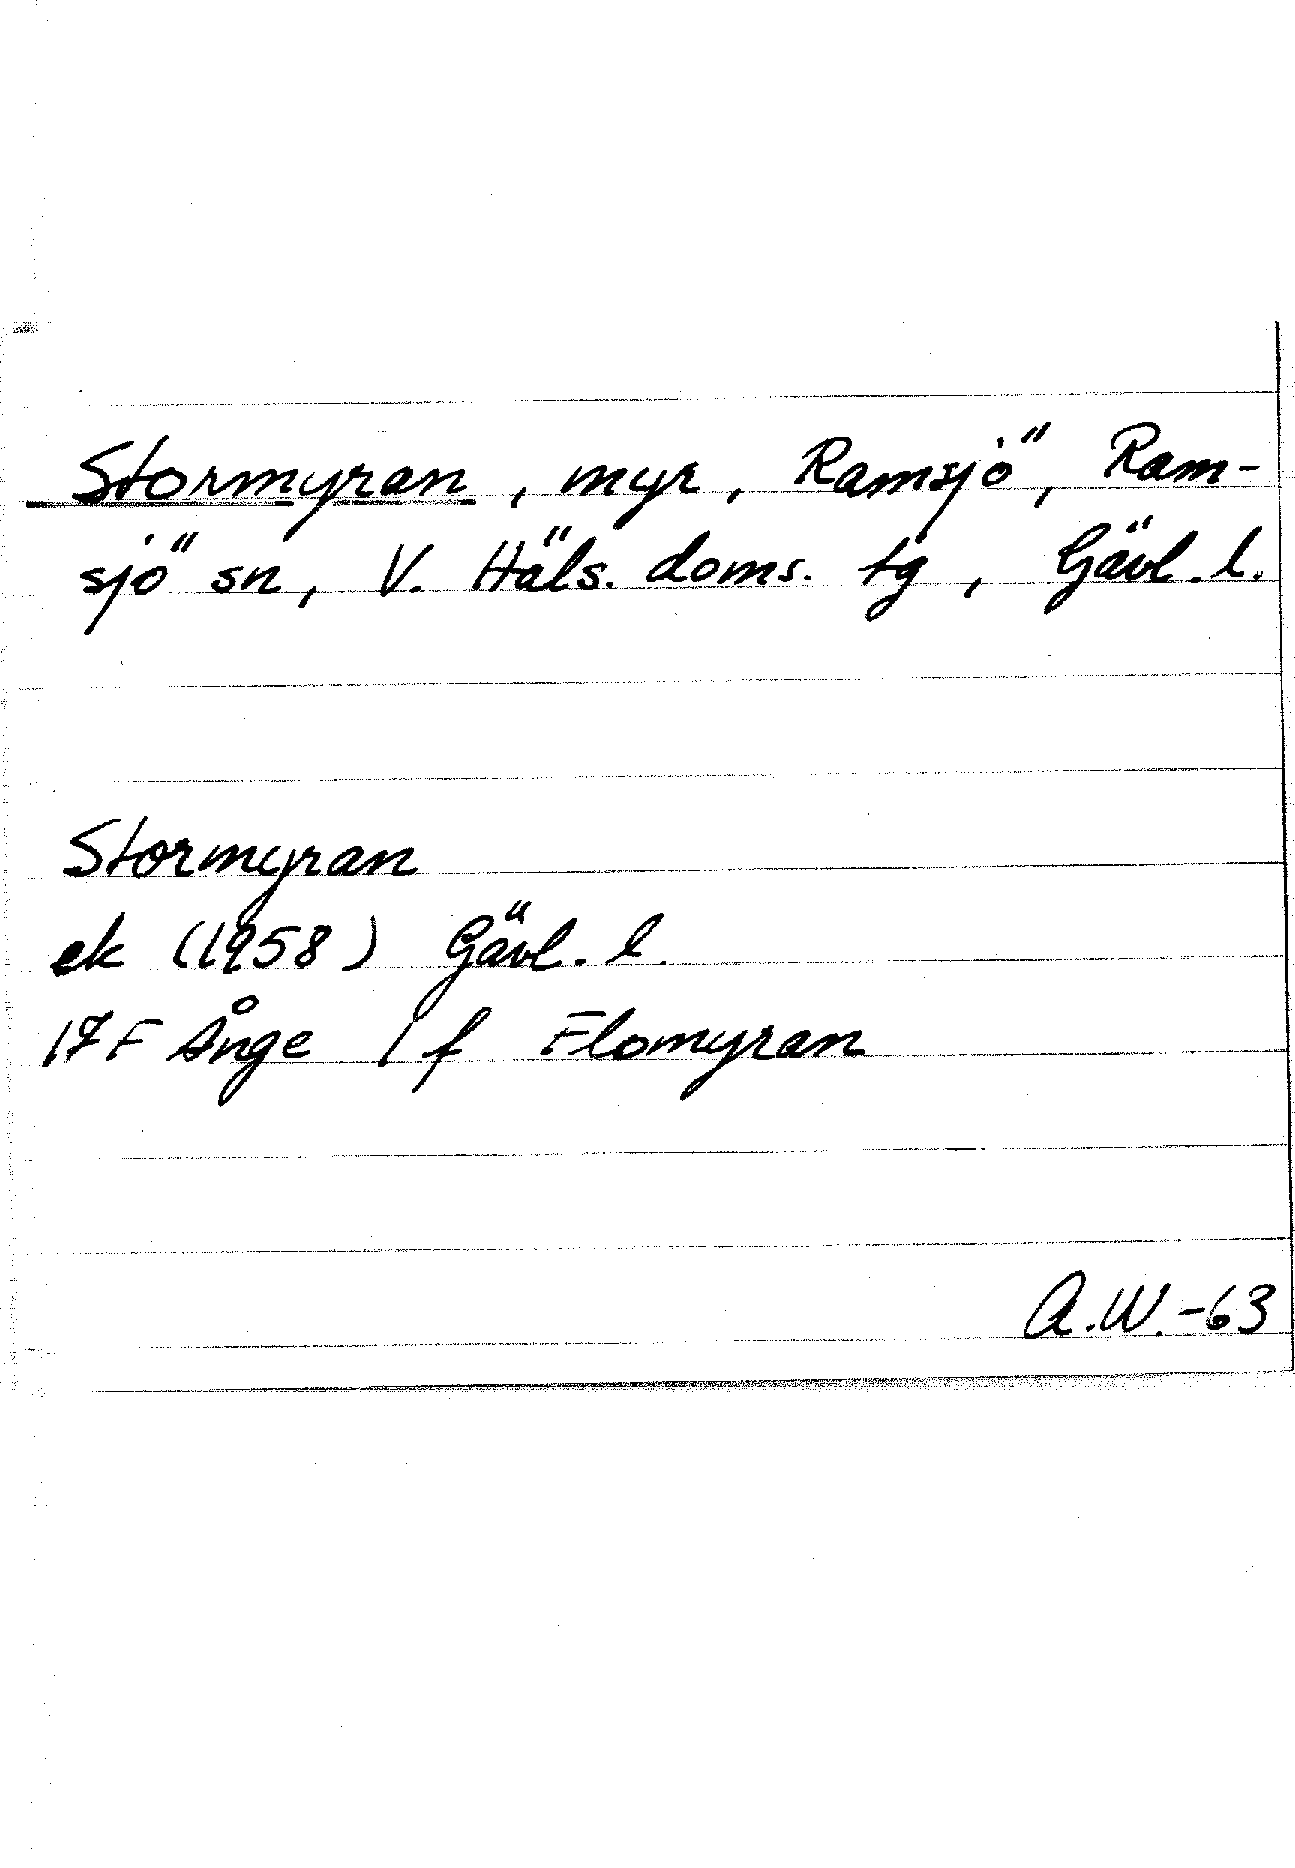 Stormyran, myr, Ramsjö, Ram-
sjö sn, V. Häls. doms. tg, Gävl. l.
Stormyran
ek (1958) Gävl. l.
17F Ånge 1f Flomyran
A.W.-63